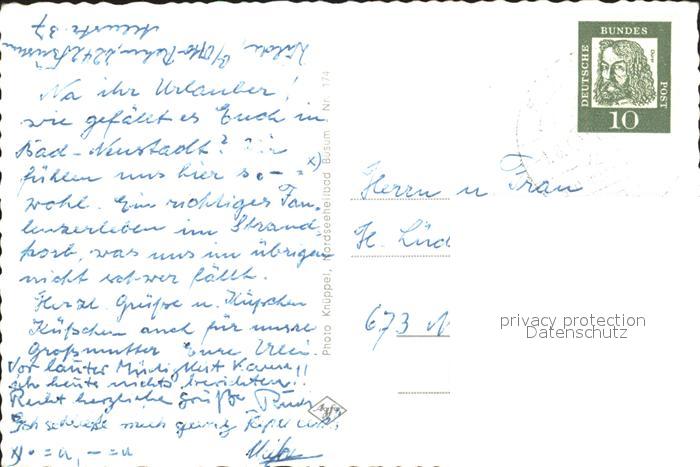 Na ihr Urlauber!
wie gefällt es Euch in
Bad-Neustadt? Wir
fühlen uns hier s.-=x)
wohl. Ein richtiges Fau-
lenzerleben im Strand-
korb, was uns im übrigen
nicht schwer fällt.
Herzl. Grüße u. Küßchen
Küßchen auch für unsre
Großmutter Eure
Vor lauter Müdigkeit kann
ich heute nichts berichten!
Recht herzliche Grüße
Ich schließe mich
Photo Knüppel, Nordseeheilbad Büsum Nr. 174
Agfa
DEUTSCHE
BUNDES
POST
Dürer
10
Herrn u Frau
H. Lüd
673 N
privacy protection
Datenschutz